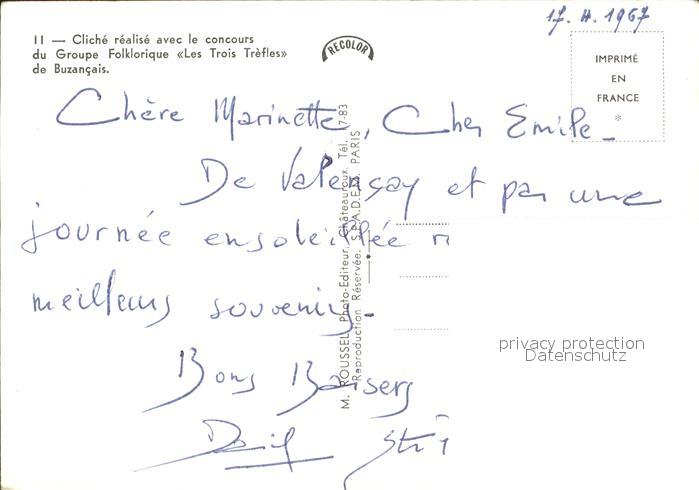 17. 4. 1967
11 — Cliché réalisé avec le concours
du Groupe Folklorique «Les Trois Trèfles»
de Buzançais.
RECOLOR
IMPRIMÉ
EN
FRANCE
*
Chère Marinette, Cher Emile_
De Valençay et par une
journée ensoleillée
meilleurs souvenirs_
Bons Baisers
M. ROUSSEL, Photo-Editeur, Châteauroux. Tél. 7-83
Reproduction Réservée. S.P.A.D.E.M. PARIS
privacy protection
Datenschutz